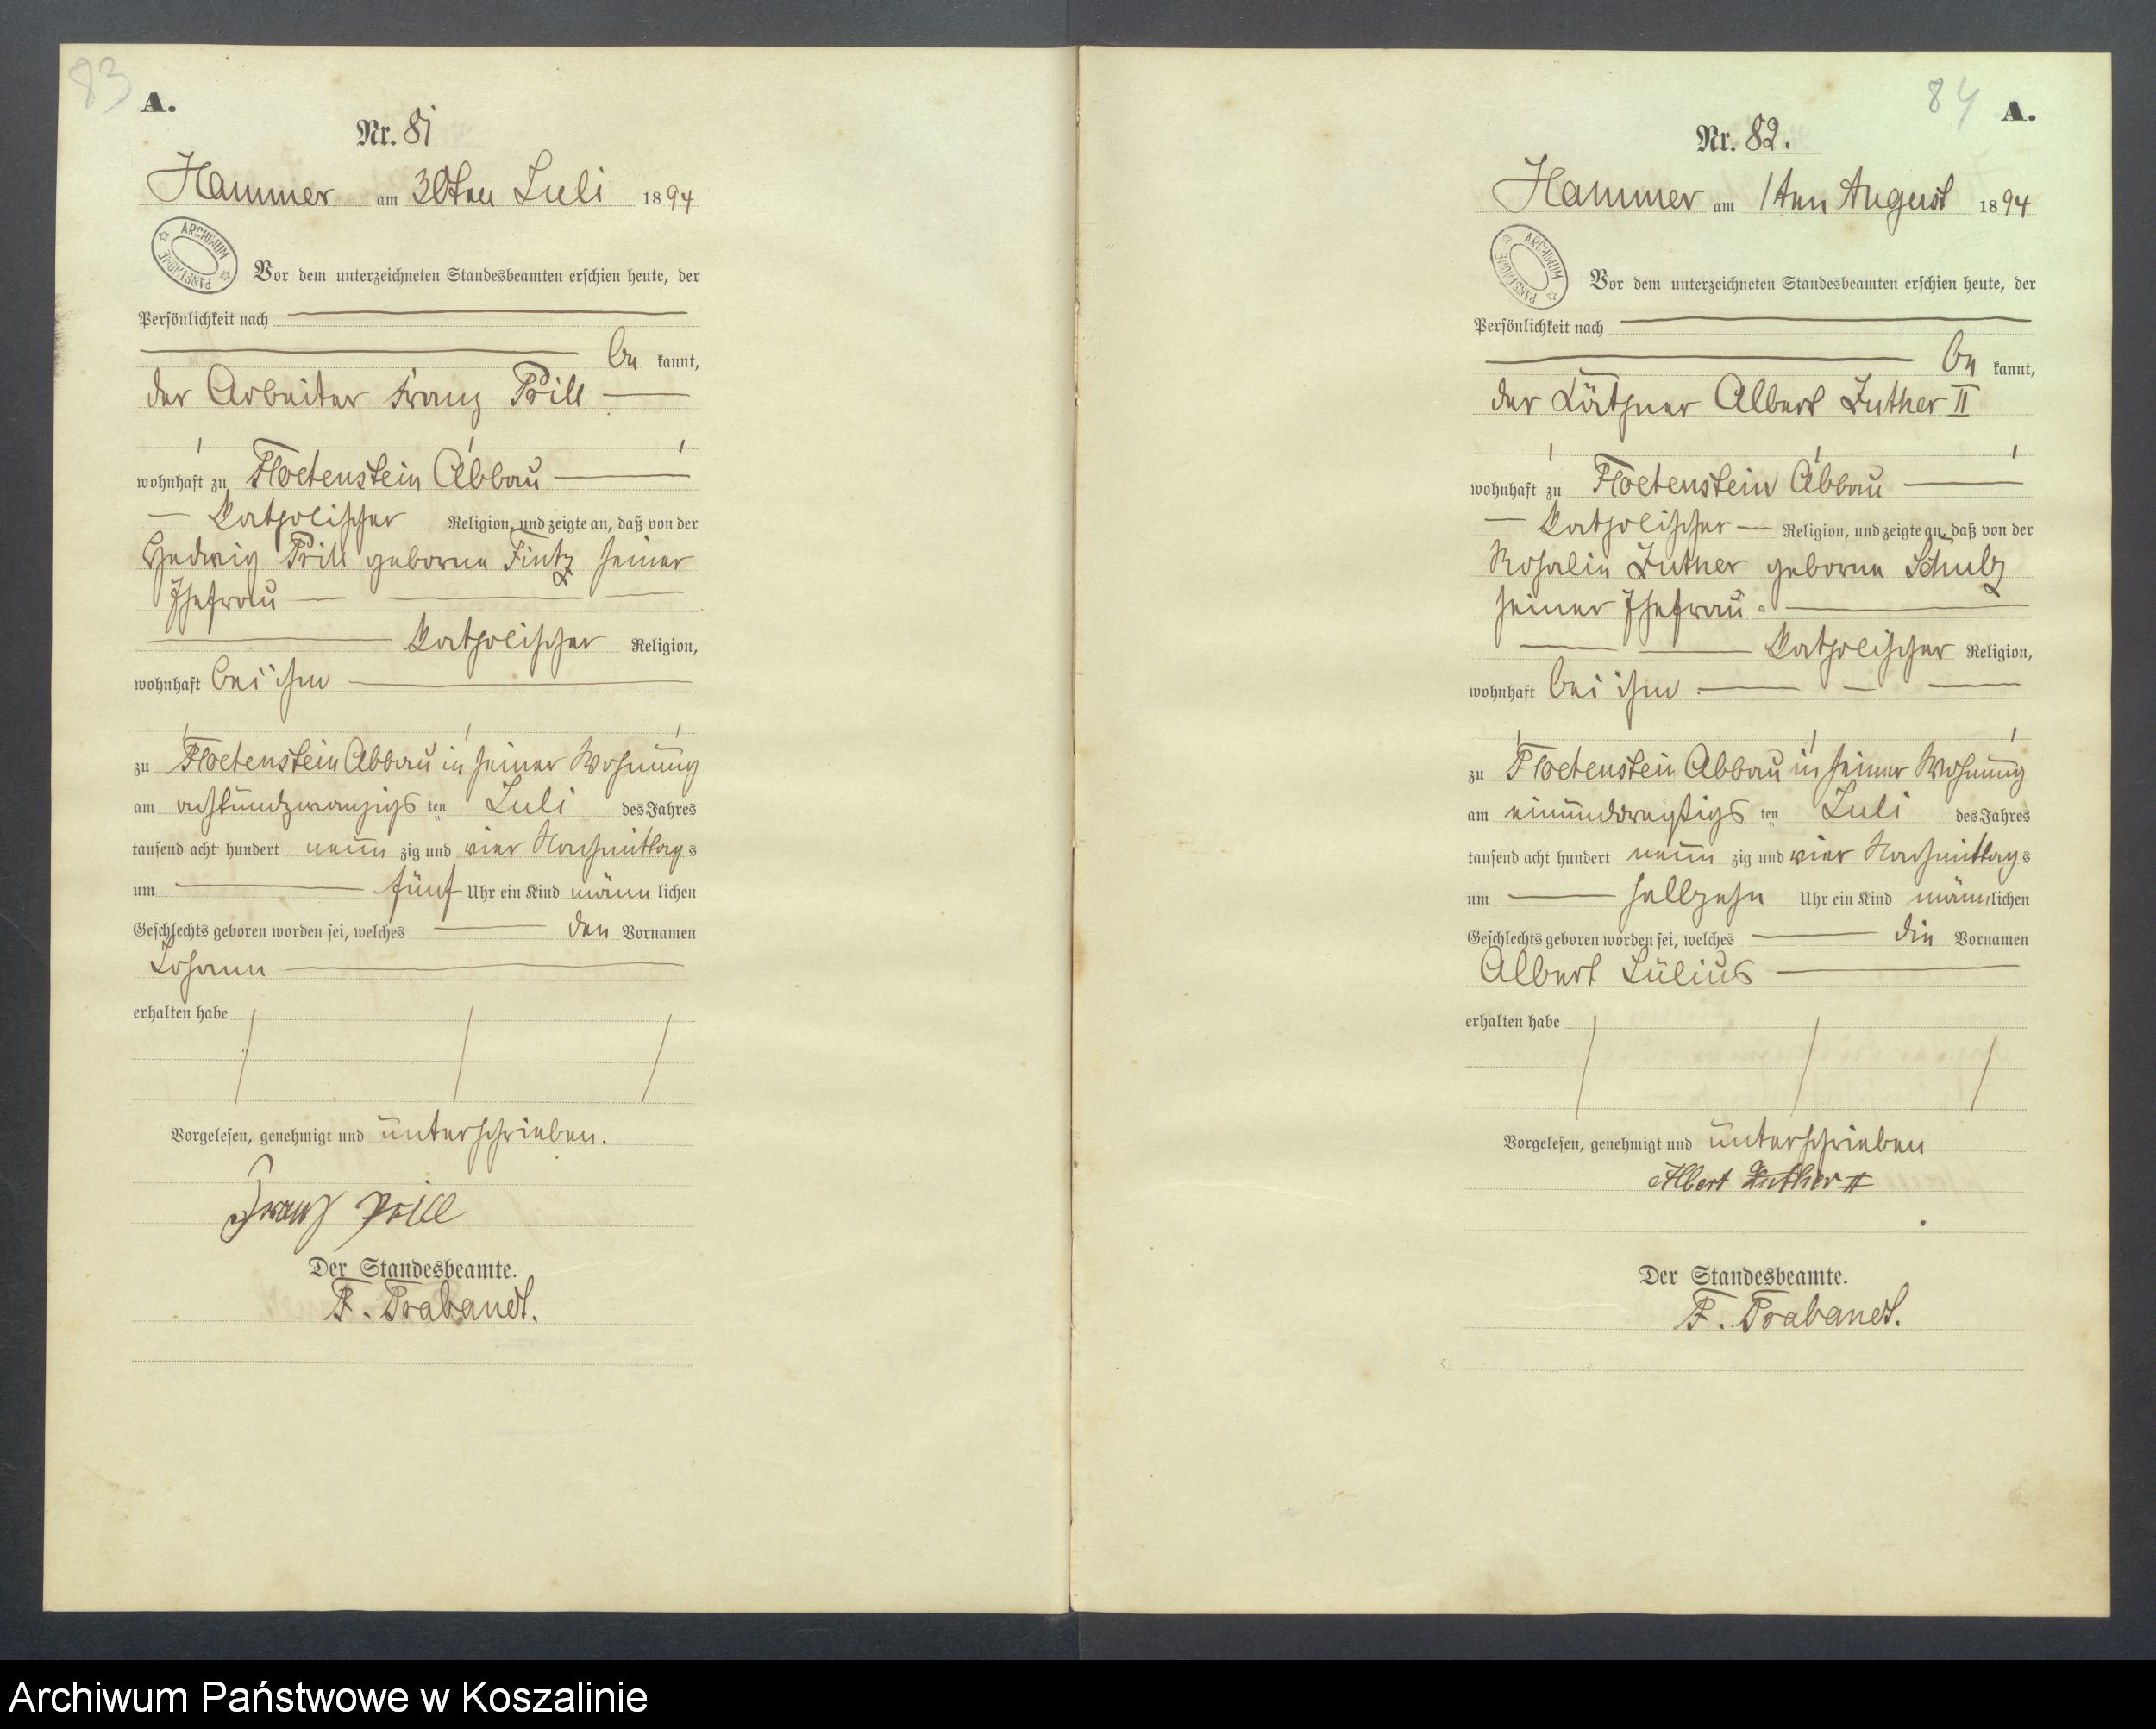 83
A.
Nr. 81
Hammer am 30ten Juli 1894
ARCHIWUM PAŃSTWOWE
Vor dem unterzeichneten Standesbeamten erschien heute, der
Persönlichkeit nach
be kannt,
der Arbeiter Franz Prill
wohnhaft zu Floetenstein Abbau
katholischer Religion, und zeigte an, daß von der
Hedwig Prill geborne Fintz seiner
Ehefrau
katholischer Religion,
wohnhaft bei ihm
zu Floetenstein Abbau in seiner Wohnung
am achtundzwanzigs ten Juli des Jahres
tausend acht hundert neun zig und vier Nachmittags
um fünf Uhr ein Kind männ lichen
Geschlechts geboren worden sei, welches den Vornamen
Johann
erhalten habe
Vorgelesen, genehmigt und unterschrieben.
Franz Prill
Der Standesbeamte.
F. Trabandt.
84
A.
Nr. 82.
Hammer am 1ten August 1894
ARCHIWUM PAŃSTWOWE
Vor dem unterzeichneten Standesbeamten erschien heute, der
Persönlichkeit nach
be kannt,
der Käthner Albert Luther II
wohnhaft zu Floetenstein Abbau
katholischer Religion, und zeigte an, daß von der
Rosalie Luther geborne Schulz
seiner Ehefrau
katholischer Religion,
wohnhaft bei ihm
zu Floetenstein Abbau in seiner Wohnung
am einunddreißigs ten Juli des Jahres
tausend acht hundert neun zig und vier Nachmittags
um halbzehn Uhr ein Kind männlichen
Geschlechts geboren worden sei, welches die Vornamen
Albert Julius
erhalten habe
Vorgelesen, genehmigt und unterschrieben
Albert Luther II
Der Standesbeamte.
F. Trabandt.
Archiwum Państwowe w Koszalinie